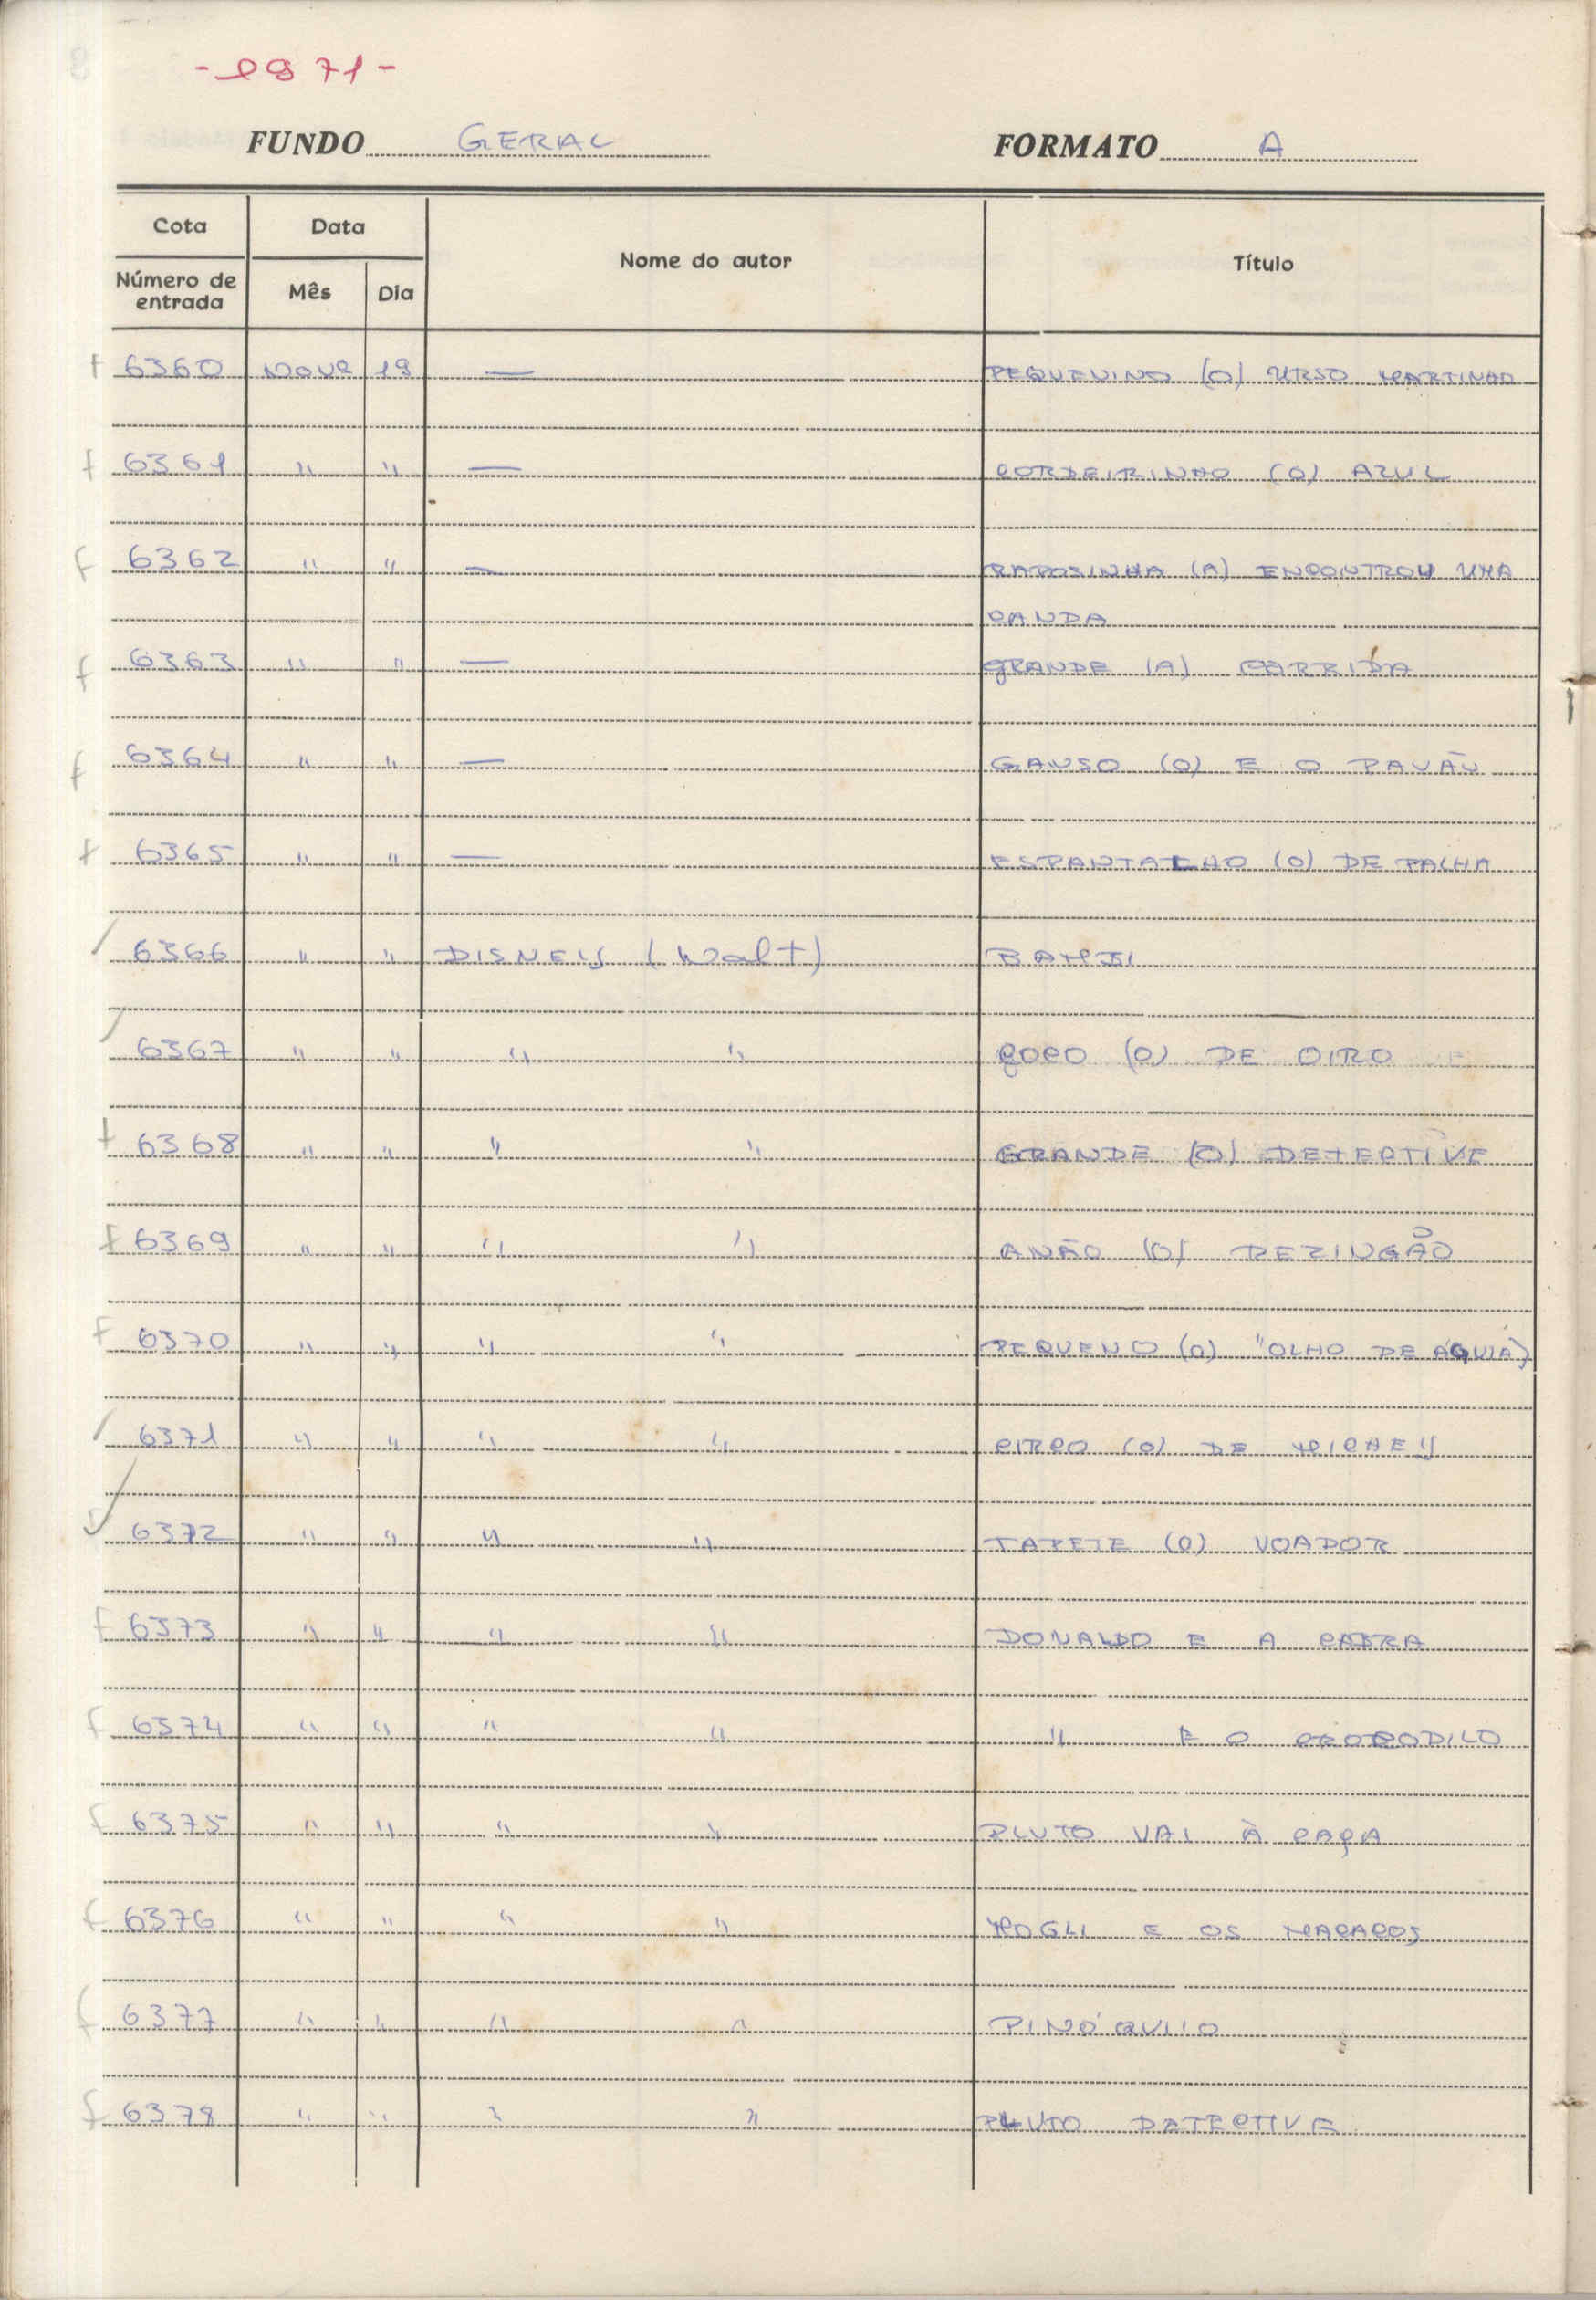 - 1971 -
FUNDO GERAL FORMATO A
Cota Data Nome do autor Título
Número de entrada Mês Dia
6360 NOVº 19 — PEQUENINO (O) URSO MARTINHO
6361 " " — CORDEIRINHO (O) AZUL
6362 " " — RAPOSINHA (A) ENCONTROU UMA
PANDA
6363 " " — GRANDE (A) CORRIDA
6364 " " — GANSO (O) E O PAVÃO
6365 " " — ESPANTALHO (O) DE PALHA
6366 " " DISNEY (Walt) BAMBI
6367 " " " " COCO (O) DE OIRO
6368 " " " " GRANDE (O) DETECTIVE
6369 " " " " ANÃO (O) REZINGÃO
6370 " " " " PEQUENO (O) "OLHO DE ÁGUIA"
6371 " " " " CIRCO (O) DE MICHEY
6372 " " " " TAPETE (O) VOADOR
6373 " " " " DONALDO E A CABRA
6374 " " " " " E O CROCODILO
6375 " " " " PLUTO VAI À CAÇA
6376 " " " " MOGLI E OS MACACOS
6377 " " " " PINÓQUIO
6378 " " " " PLUTO DETECTIVE